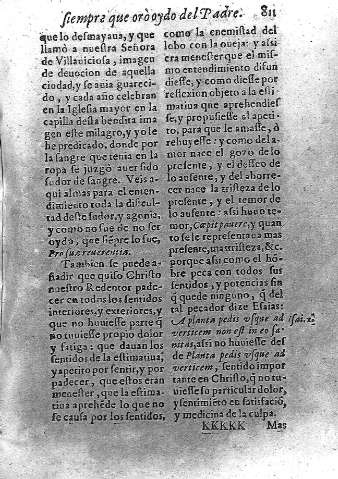 siempre que orò oydo del Padre. 811
que lo desmayaua, y que
llamò a nuestra Señora
de Villauiciosa, imagen
de deuocion de aquella
ciudad, y se auia guareci-
do, y cada año celebran
en la Iglesia mayor en la
capilla desta bendita ima
gen este milagro, y yo le
he predicado, donde por
la sangre que tenia en la
ropa se juzgò auer sido
sudor de sangre. Veis a-
qui almas para el enten-
dimiento toda la dificul-
tad deste sudor, y agonia,
y como no fue de no ser
oydo, que siẽpre lo fue,
Pro sua reuerentia.
Tambien se puede a-
ñadir que quiso Christo
nuestro Redentor pade-
cer en todos los sentidos
interiores, y exteriores, y
que no huuiesse parte q̃
no tuuiesse propio dolor
y fatiga: que dauan los
sentidos de la estimatiua,
y apetito por sentir, y por
padecer, que estos eran
menester, que la estima-
tiua aprehẽde lo que no
se causa por los sentidos,
como la enemistad del
lobo con la oueja: y assi
era menester que el mis-
mo entendimiento disun
diesse, y como diesse por
reflexion objeto a la esti-
matiua que aprehendies-
se, y propusiesse al apeti-
to, para que le amasse, ò
rehuyesse: y como del a-
mor nace el gozo de lo
presente, y el desseo de
lo ausente, y del aborre-
cer nace la tristeza de lo
presente, y el temor de
lo ausente: assi huuo te-
mor, Cœpit pauere, y quan
to se le representaua mas
presente, mas tristeza, &c.
porque assi como el hõ-
bre peca con todos sus
sentidos, y potencias sin
q̃ quede ninguno, q̃ del
tal pecador dize Esaias:
A planta pedis vsque ad
verticem non est in eo sa-
nitas, assi no huuiesse des
de Planta pedis vsque ad
verticem, sentido impor
tante en Christo, q̃ no tu-
uiesse su particular dolor,
y sentimiẽto en satisfaciõ,
y medicina de la culpa.
Isai. 1.
KKKKK Mas